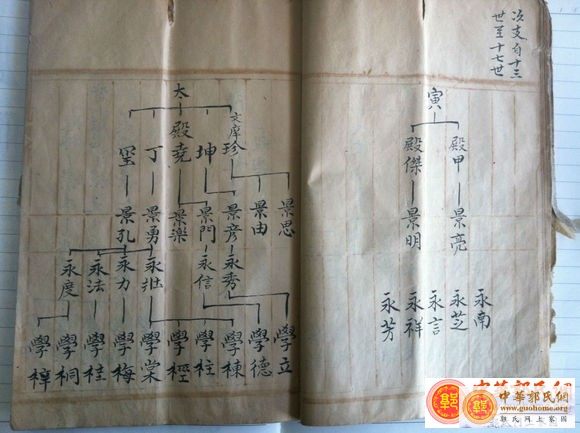 次支自十三
世至十七世
寅
殿甲
殿傑
景亮
景明
永南
永芝
永言
永祥
永芳
太
文庠
珍
坤
殿堯
丁
景思
景由
景彦
景門
景樂
景勇
景孔
永秀
永信
永壯
永力
永法
永度
學立
學德
學棟
學柱
學桱
學棠
學梅
學桂
學桐
學梓
中華郭氏網
www.guohome.org
郭氏網上家園